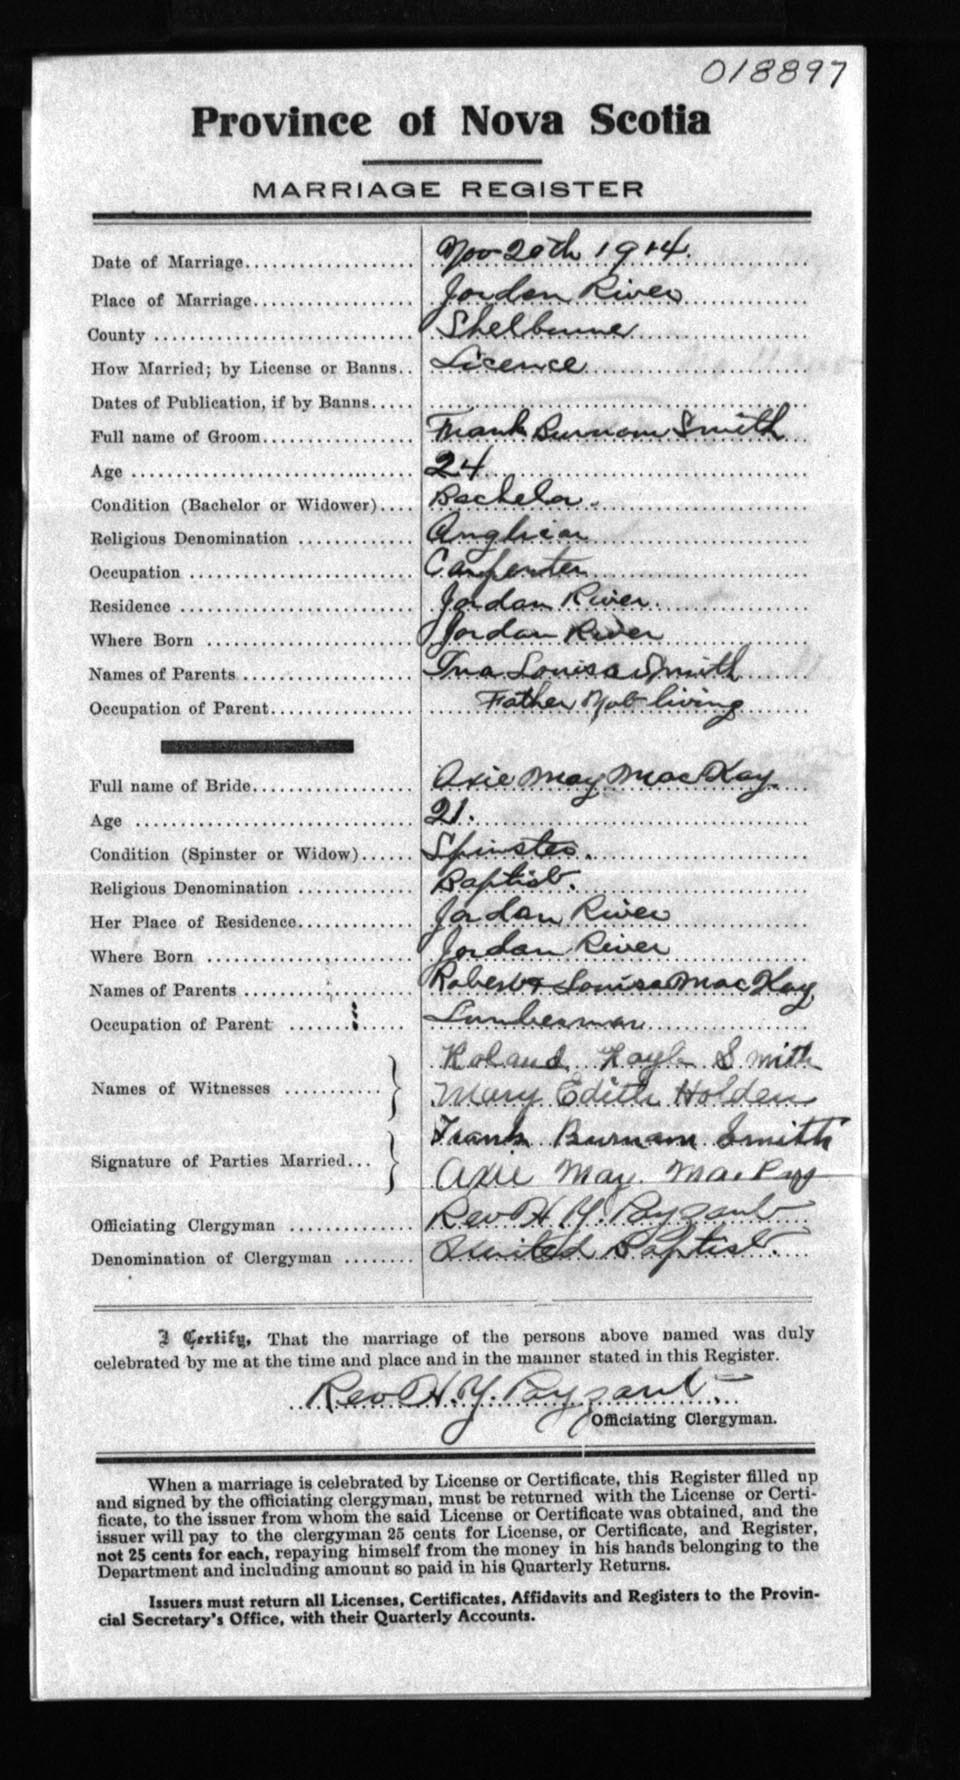 018897
Province of Nova Scotia
MARRIAGE REGISTER
Date of Marriage.................... Nov 20th 1914.
Place of Marriage................... Jordan River
County .............................. Shelburne
How Married; by License or Banns.. Licence
Dates of Publication, if by Banns.....
Full name of Groom.................. Frank Burnam Smith
Age ................................. 24
Condition (Bachelor or Widower).... Bachelor.
Religious Denomination ............. Anglican
Occupation .......................... Carpenter
Residence ........................... Jordan River.
Where Born ........................ Jordan River
Names of Parents .................... Louisa Smith
Occupation of Parent................. Father Not living
Full name of Bride................... Axie May MacKay.
Age ................................. 21.
Condition (Spinster or Widow)...... Spinster.
Religious Denomination ............. Baptist.
Her Place of Residence............. Jordan River
Where Born ........................ Jordan River
Names of Parents .................... Robert & Louisa MacKay
Occupation of Parent ............... Lumberman
Names of Witnesses ........... } Roland Smith
Mary Edith Holden
Signature of Parties Married... } Frank Burnam Smith
Axie May MacKay
Officiating Clergyman .............. Rev H. Y. Payzant
Denomination of Clergyman ........ United Baptist.
I Certify, That the marriage of the persons above named was duly
celebrated by me at the time and place and in the manner stated in this Register.
Rev H. Y. Payzant.
Officiating Clergyman.
When a marriage is celebrated by License or Certificate, this Register filled up
and signed by the officiating clergyman, must be returned with the License or Certi-
ficate, to the issuer from whom the said License or Certificate was obtained, and the
issuer will pay to the clergyman 25 cents for License, or Certificate, and Register,
not 25 cents for each, repaying himself from the money in his hands belonging to the
Department and including amount so paid in his Quarterly Returns.
Issuers must return all Licenses, Certificates, Affidavits and Registers to the Provin-
cial Secretary's Office, with their Quarterly Accounts.